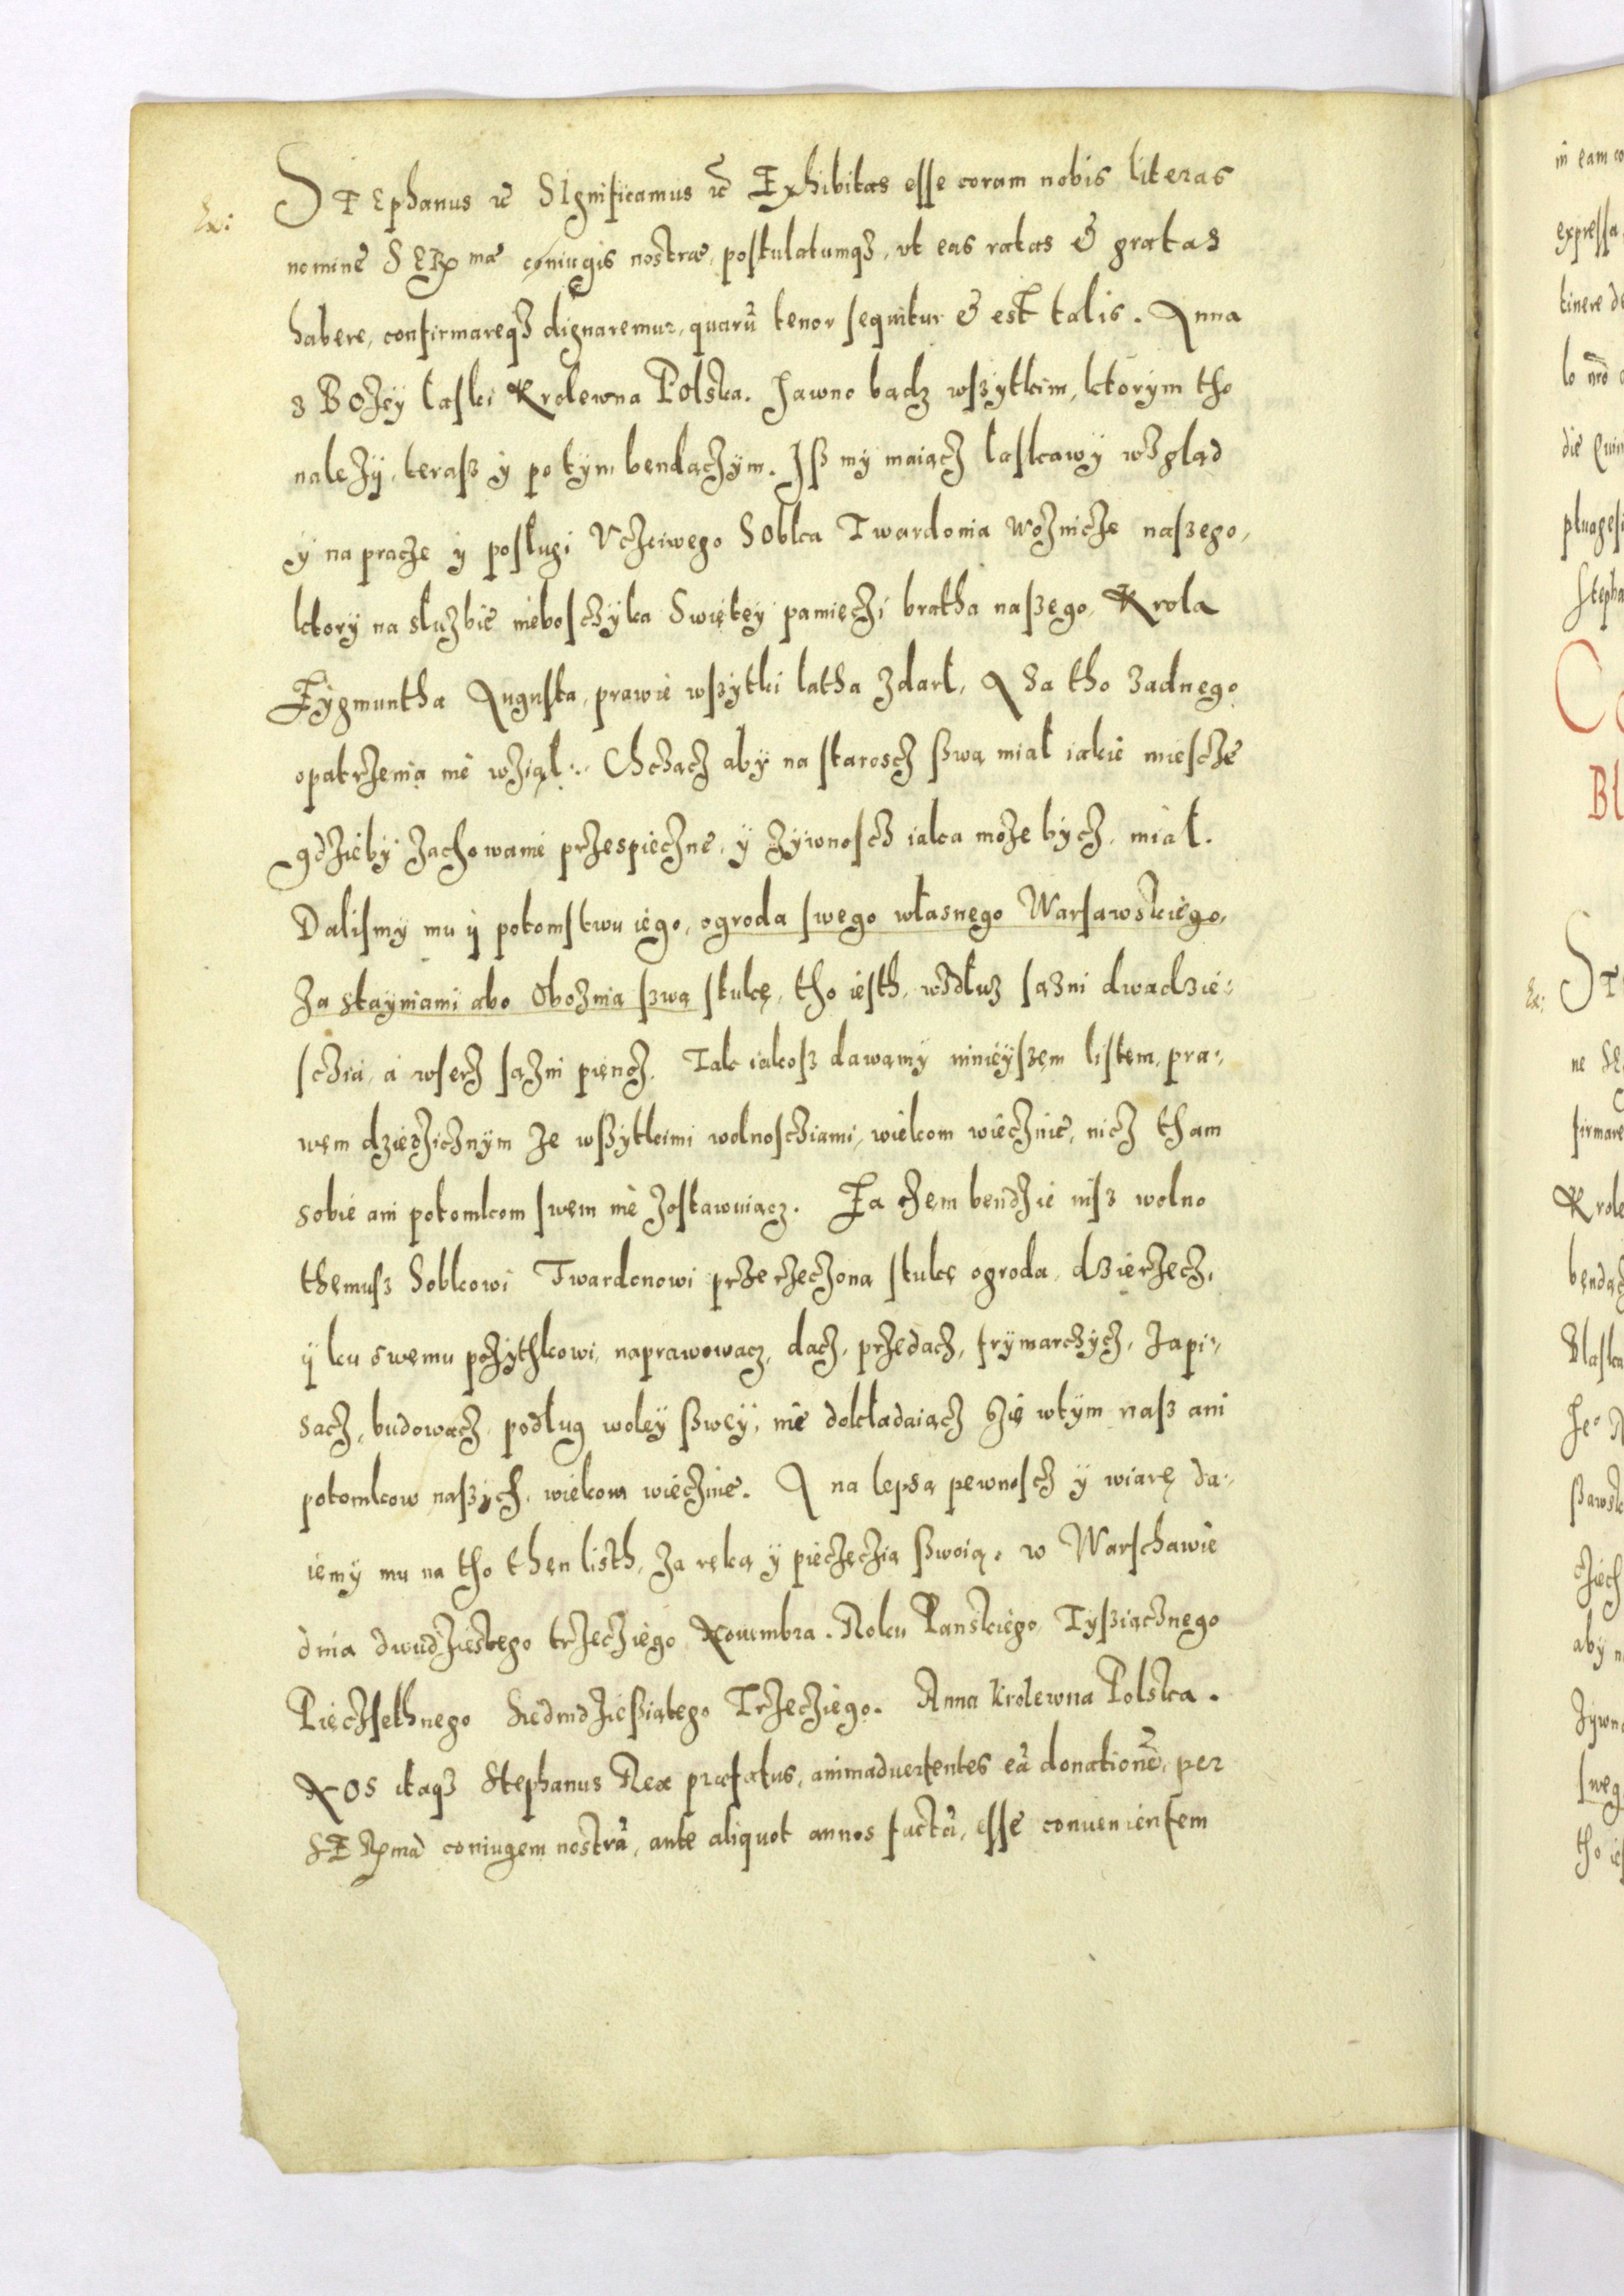 Ex:
STEphanus etc SIgnificamus etc Exhibitas esse coram nobis literas
nomine SERmae coniugis nostrae, postulatumqʒ, vt eas ratas & gratas
habere, confirmareqʒ dignaremur, quarũ tenor sequitur & est talis. Anna
z BOżey łaski Krolewna Polska. Jawno bądz wszytkim, ktorym tho
należÿ, terasz ÿ potym bendączym. Jsz mÿ maiącz łaskawÿ wzgląd
ÿ na pracze ÿ posługi Vcżciwego SObka Twardonia woźnicże naszego,
ktorÿ na służbie nieboscżyka Swiętey pamieczi bratha naszego, Krola
Zÿgmuntha Augusta, prawie wszÿtki latha zdarł, A za tho zadnego
opatrżenia nie wżiął: Chcżącz abÿ na staroscz szwą miał iakie miescże
gdżiebÿ zachowanie przespiecżne, ÿ żÿwnoscż iaka może bÿcż, miał.
Dalismÿ mu ÿ potomstwu iego, ogroda swego własnego Warsawskiego,
Za stayniami abo Oboznią szwą stukę, tho iesth, wzdłuz sązni dwadzie:
scżia, a wserz sążni piencż. Tak iakosz dawamÿ ninieÿszem listem, pra:
wem dziedżicżnÿm ze wszÿtkimi wolnoscziami, wiekom wiecżnie, nicż tham
sobie ani potomkom swem nie zostawuiącz. Za cżem bendżie iusz wolno
themusz Sobkowi Twardonowi przerżecżoną stukę ogroda, dzierżecż,
ÿ ku swemu pożÿthkowi, naprawowacz, dacż, przedacż, frÿmarczÿcż, zapi:
sacż, budowacż podług woleÿ szweÿ, nie dokładaiącż się wtÿm nasz ani
potomkow naszÿch, wiekom wiecżnie. A na lepsą pewnoscż ÿ wiarę da:
iemÿ mu na tho then listh, za ręką ÿ piecżęcżią szwoią. w Warschawie
dnia dwudżiestego trżecżiego Nouembra. Roku Panskiego, Tÿsziącznego
Pięcżsethnego Siedmdżiesziątego Trżecżiego. Anna krolewna Polska.
NOS itaqʒ Stephanus Rex praefatus, animaduertentes eã donationẽ, per
SERmã coniugem nostrã, ante aliquot annos factã, esse conuenientem